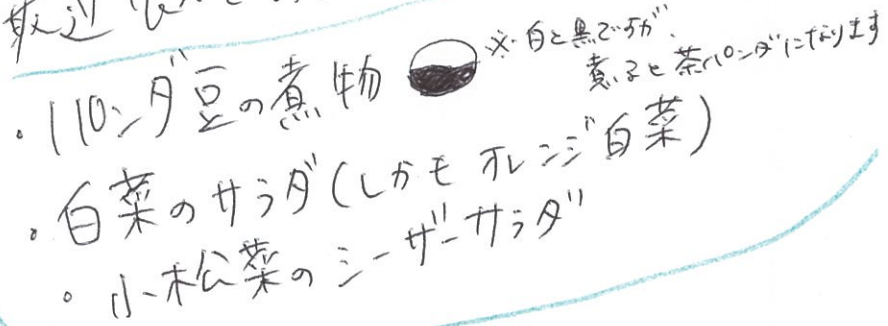 最近
・パンダ豆の煮物 ※白と黒ですが、
煮ると茶パンダになります
・白菜のサラダ(しかもオレンジ白菜)
・小松菜のシーザーサラダ